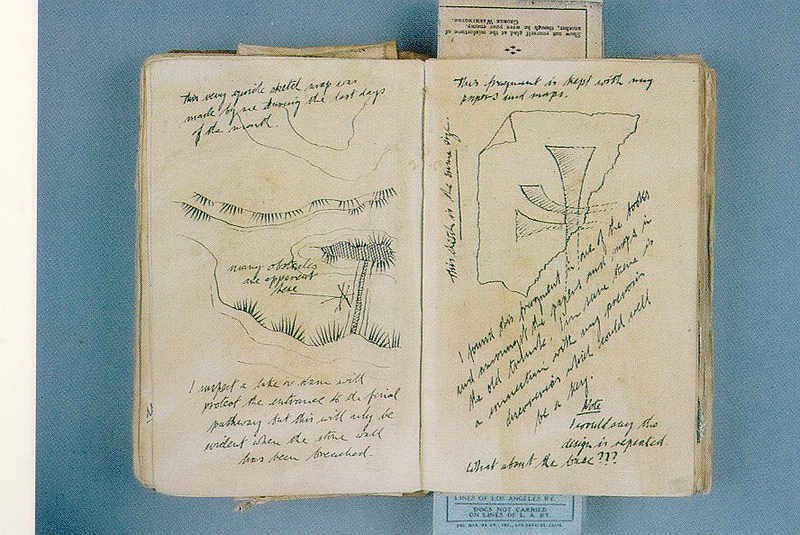 Show not yourself glad at the misfortune of
another, though he were your enemy.
GEORGE WASHINGTON.
this very quick sketch map was
made by me during the last days
of the month.
many obstacles
are apparent
here
I suspect a lake or dam will
protect the entrance to the final
pathway but this will only be
evident when the stone wall
has been breached.
This fragment is kept with my
papers and maps.
this sketch is the same size.
I found this fragment in one of the books
and amongst the papers and maps in
the old trunk. I'm sure there is
a connection with my previous
discoveries which could well
be a key.
Note
I would say the
design is repeated.
What about the base???
LINES OF LOS ANGELES RY.
DOGS NOT CARRIED
ON LINES OF L. A. RY.